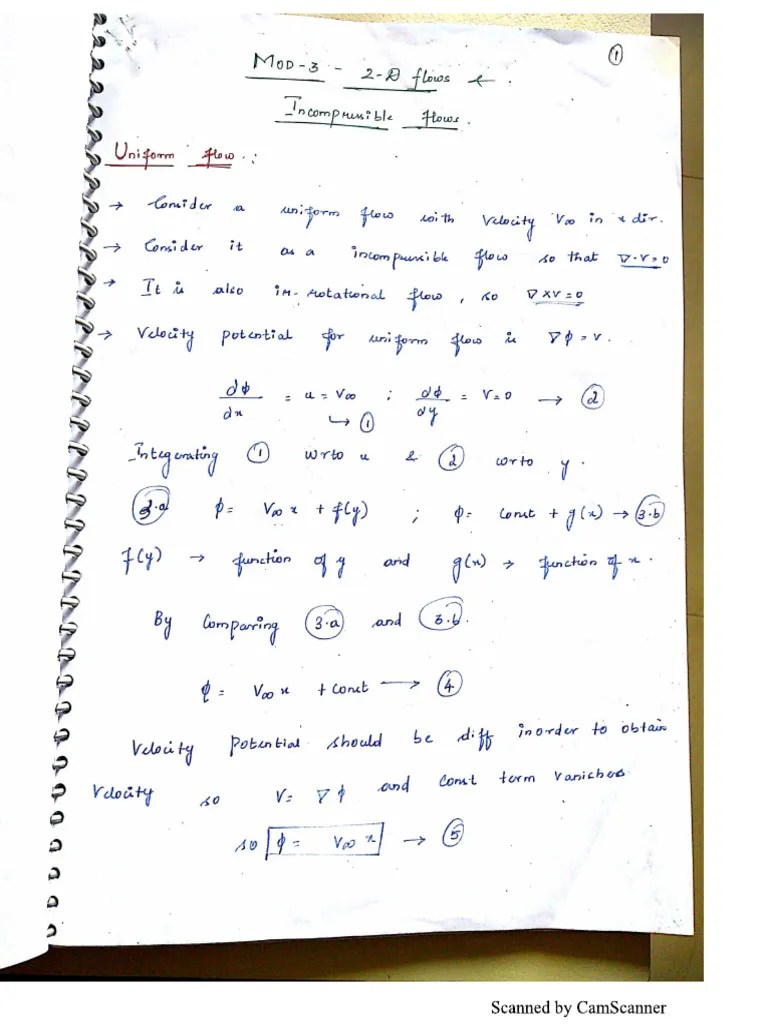 ①
MOD-3 - 2-D flows &
Incompressible flows.
Uniform flow :
→ Consider a uniform flow with velocity V∞ in x dir.
→ Consider it as a incompressible flow so that ∇·V=0
→ It is also irr-rotational flow, so ∇×V=0
→ Velocity potential for uniform flow is ∇ϕ=V.
dϕ/dx = u = V∞ ; dϕ/dy = V=0 → ②
↳ ①
Integrating ① wrto x & ② wrto y.
3.a ϕ= V∞ x + f(y) ; ϕ= const + g(x) → 3.b
f(y) → function of y and g(x) → function of x.
By comparing 3.a and 3.b.
ϕ = V∞ x + const → ④
Velocity potential should be diff inorder to obtain
Velocity so V= ∇ϕ and const term vanishes
so ϕ = V∞ x → ⑤
Scanned by CamScanner